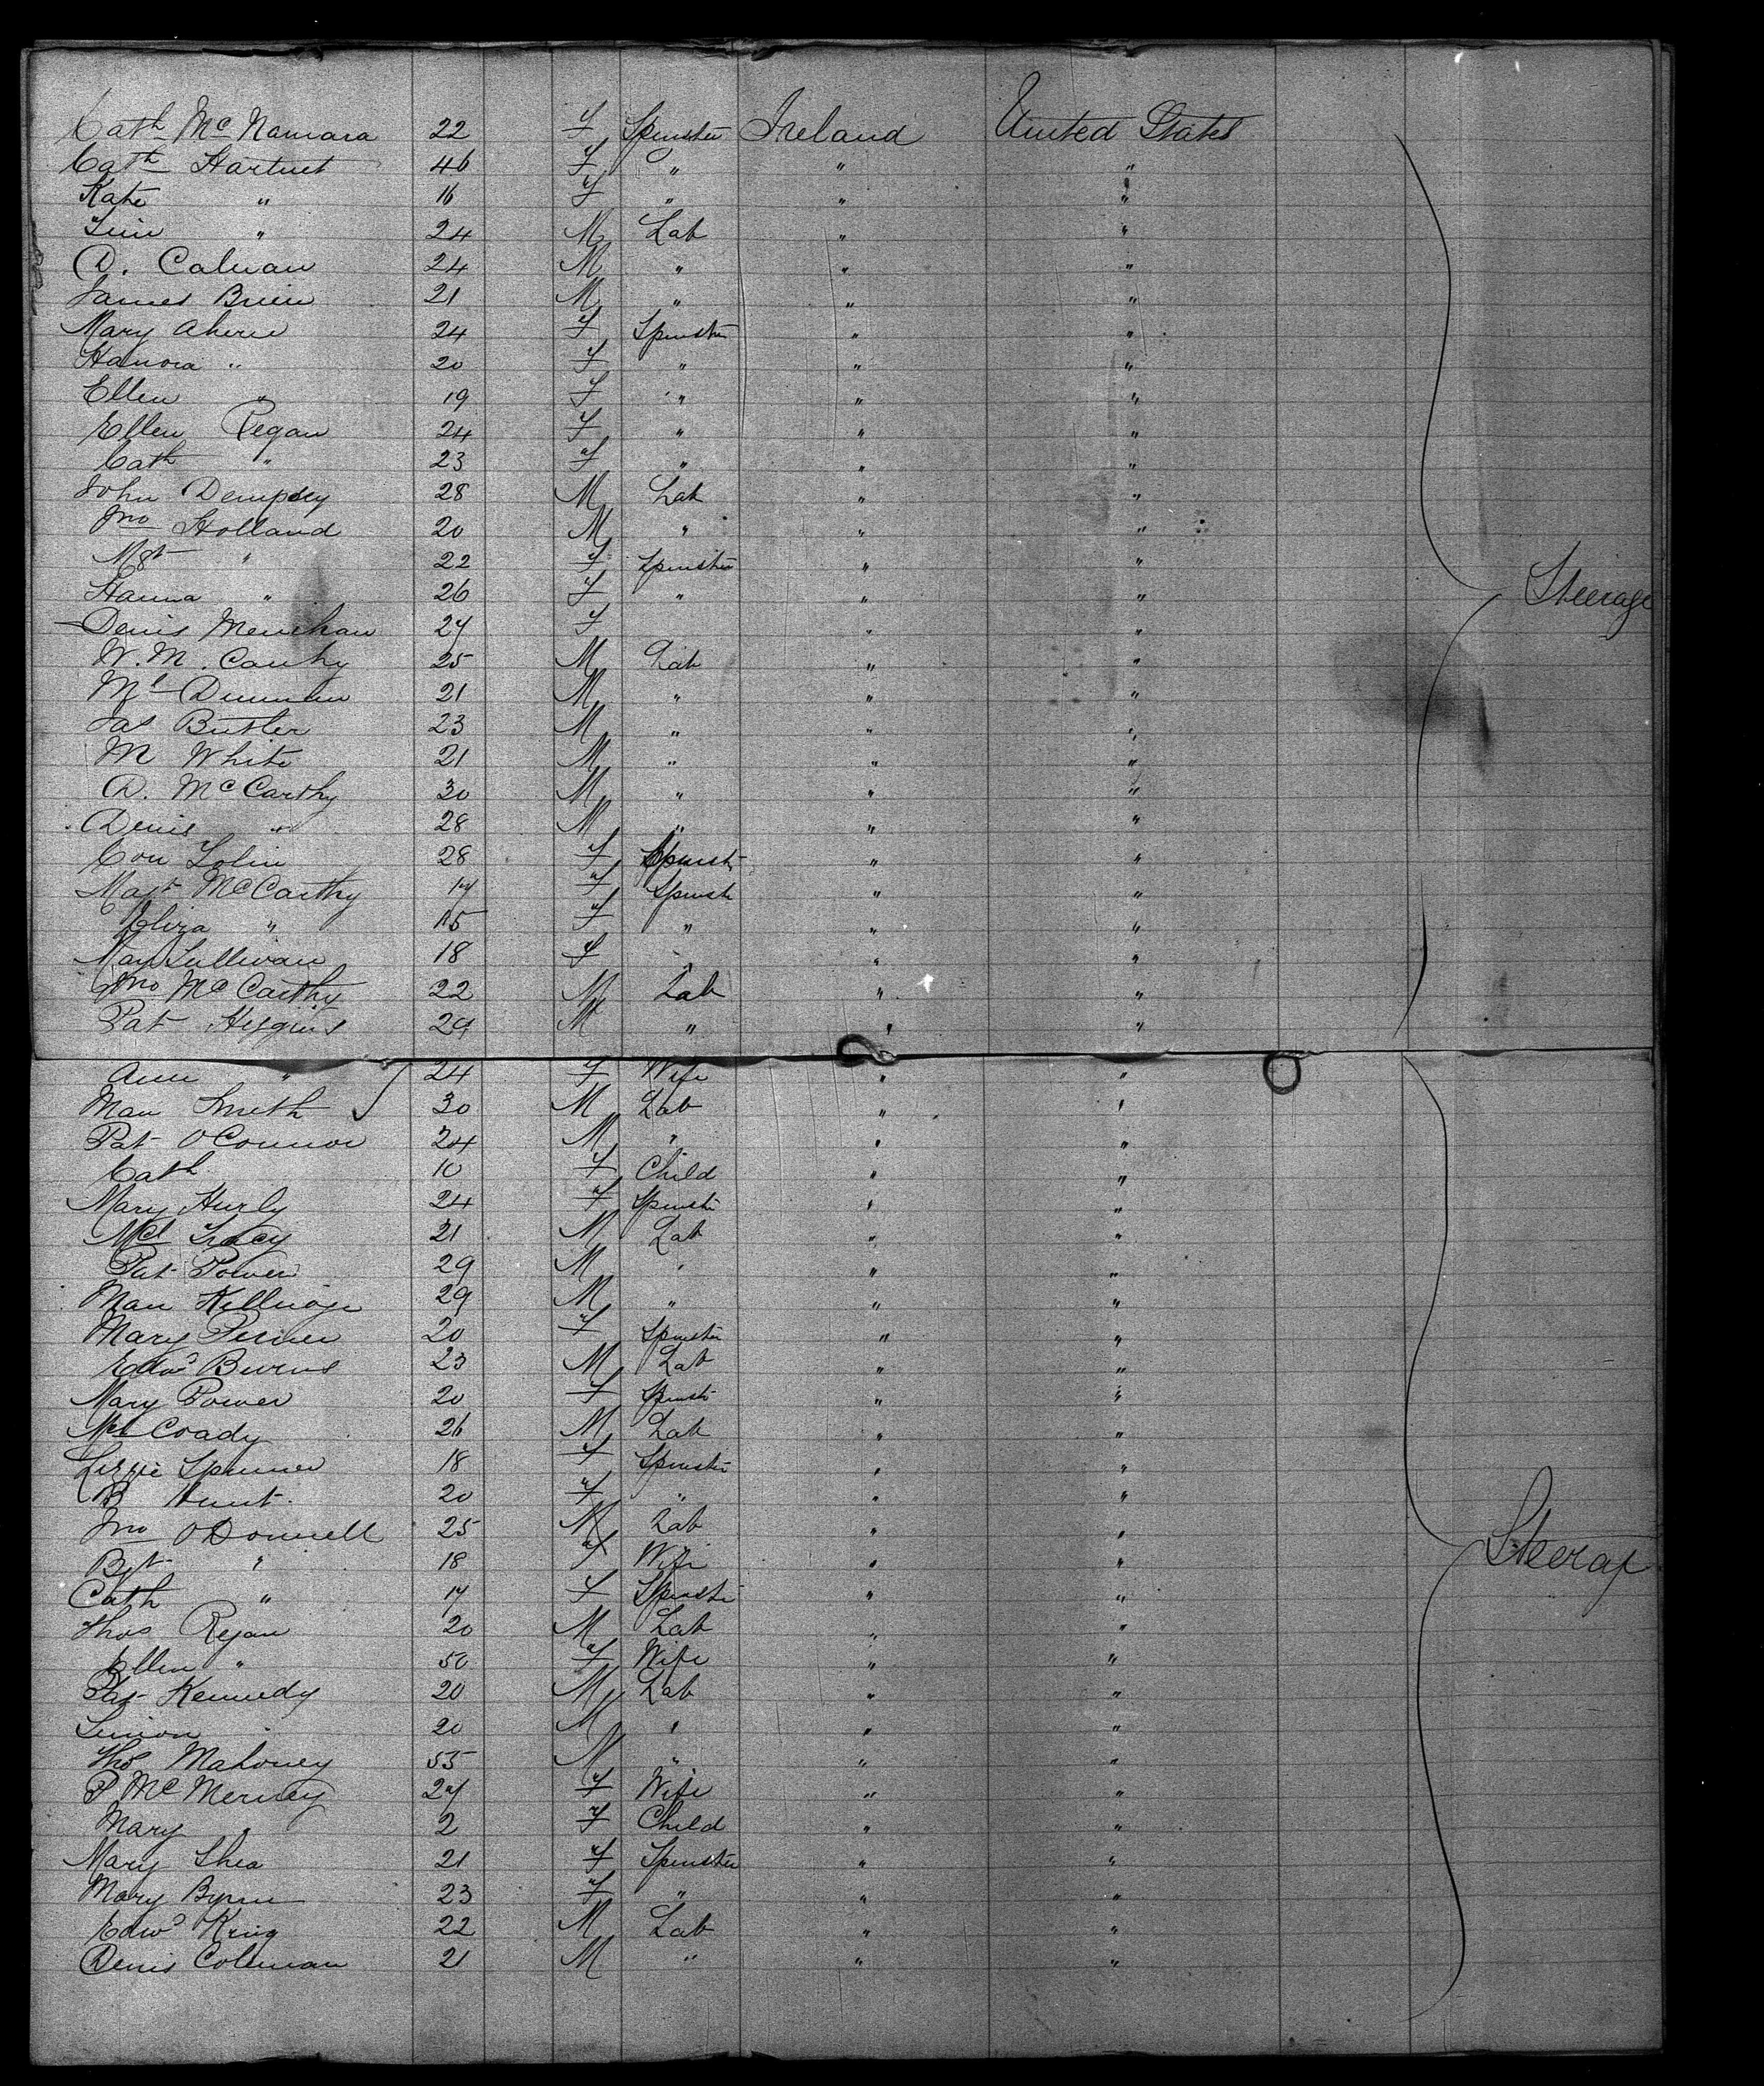 Cath Mc Namara 22 F Spinster Ireland United States
Cath Hartnet 46 F " " "
Kate " 16 F " " "
Tim " 24 M Lab " "
D. Calnan 24 M " " "
James Brien 21 M " " "
Mary Aherne 24 F Spinster " "
Hanora " 20 F " " "
Ellen " 19 F " " "
Ellen Regan 24 F " " "
Cath " 23 F " " "
John Dempsey 28 M Lab " "
Jno Holland 20 M " " "
Mgt " 22 F Spinster " "
Hanna " 26 F " " " Steerage
Denis Menihan 27 F " "
W. M. Carthy 25 M Lab " "
Ml 21 M " " "
Jas Butler 23 M " " "
M White 21 M " " "
D. McCarthy 30 M " " "
Denis " 28 M " " "
Con Tobin 28 F Spinst " "
Magt McCarthy 17 F Spinst " "
Eliza " 15 F " " "
May Sullivan 18 F " " "
Jno McCarthy 22 M Lab " "
Pat Higgins 29 M " " "
Ann " 24 F Wife " "
Mau Smith 30 M Lab " "
Pat O'Connor 24 M " " "
Cath 10 F Child " "
Mary Hurly 24 F Spinstr " "
Mcl Tracy 21 M Lab " "
Pat Power 29 M " " "
Mau 29 M " " "
Mary 20 F Spinster " "
Edwd Burns 23 M Lab " "
Mary Power 20 F Spinstr " "
Mcl Coady 26 M Lab " "
Lizzie 18 F Spinstr " "
B Hunt 20 F " " "
Jno O'Donnell 25 M Lab " " Steerage
Bgt " 18 F Wife " "
Cath " 17 F Spinstr " "
Thos Ryan 20 M Lab " "
Ellen " 50 F Wife " "
Pat Kennedy 20 M Lab " "
Simon " 20 M " " "
Thos Mahoney 55 M " " "
P McMerney 27 F Wife " "
Mary " 2 F Child " "
Mary Shea 21 F Spinster " "
Mary Byrne 23 F " " "
Edwd King 22 M Lab " "
Denis Coleman 21 M " " "